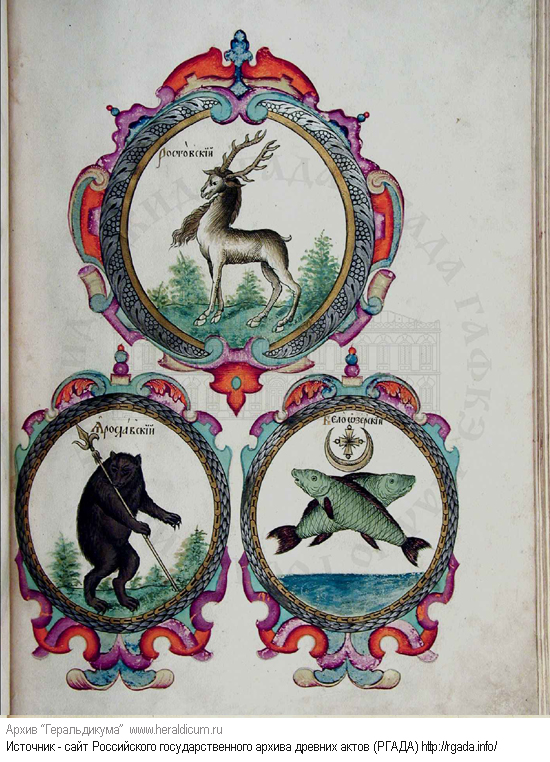 Ростовскiй
Ярославскiй
Белоѡзерскiй
Архив "Геральдикума" www.heraldicum.ru
Источник - сайт Российского государственного архива древних актов (РГАДА) http://rgada.info/